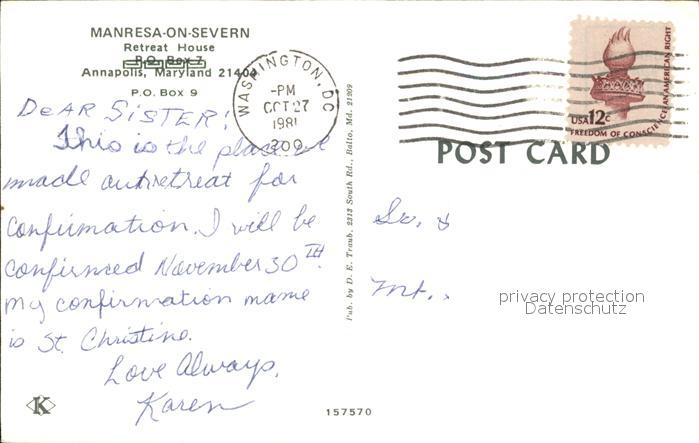 MANRESA-ON-SEVERN
Retreat House
P.O. Box 7
Annapolis, Maryland 21404
P.O. Box 9
DEAR SISTER!
This is the place we
made our retreat for
Confirmation. I will be
confirmed November 30 TH.
My confirmation name
is St. Christine.
Love Always,
Karen
K
WASHINGTON, DC
-PM
OCT 27
1981
200
Pub. by D. E. Traub, 2313 South Rd., Balto, Md. 21209
157570
USA 12c
FREEDOM OF CONSCIENCE AN AMERICAN RIGHT
POST CARD
Sr. &
Mt.
privacy protection
Datenschutz